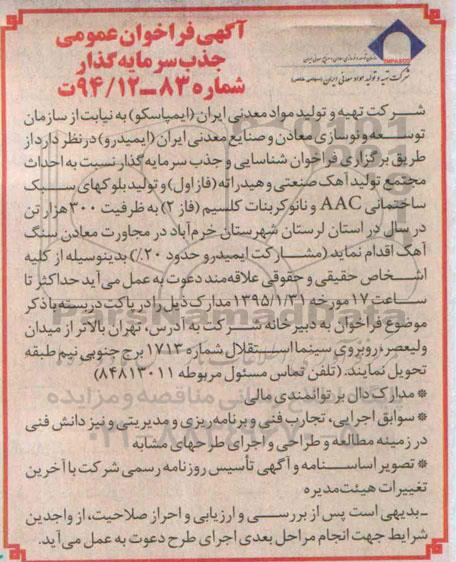 آگهی فراخوان عمومی
جذب سرمایه‌گذار
شماره ۸۳ـ۹۴/۱۲ت
IMPASCO
شرکت تهیه و تولید مواد معدنی ایران (سهامی خاص)
شرکت تهیه و تولید مواد معدنی ایران (ایمپاسکو) به نیابت از سازمان
توسعه و نوسازی معادن و صنایع معدنی ایران (ایمیدرو) در نظر دارد از
طریق برگزاری فراخوان شناسایی و جذب سرمایه‌گذار نسبت به احداث
مجتمع تولید آهک صنعتی و هیدراته (فاز اول) و تولید بلوکهای سبک
ساختمانی AAC و نانوکربنات کلسیم (فاز ۲) به ظرفیت ۳۰۰ هزار تن
در سال در استان لرستان شهرستان خرم‌آباد در مجاورت معادن سنگ
آهک اقدام نماید (مشارکت ایمیدرو حدود ۲۰٪) بدینوسیله از کلیه
اشخاص حقیقی و حقوقی علاقه‌مند دعوت به عمل می‌آید حداکثر تا
ساعت ۱۷ مورخه ۱۳۹۵/۱/۳۱ مدارک ذیل را در پاکت دربسته با ذکر
موضوع فراخوان به دبیرخانه شرکت به آدرس، تهران بالاتر از میدان
ولیعصر، روبروی سینما استقلال شماره ۱۷۱۳ برج جنوبی نیم طبقه
تحویل نمایند. (تلفن تماس مسئول مربوطه ۸۴۸۱۳۰۱۱)
* مدارک دال بر توانمندی مالی
* سوابق اجرایی، تجارب فنی و برنامه‌ریزی و مدیریتی و نیز دانش فنی
در زمینه مطالعه و طراحی و اجرای طرحهای مشابه
* تصویر اساسنامه و آگهی تأسیس روزنامه رسمی شرکت با آخرین
تغییرات هیئت‌مدیره
ـ بدیهی است پس از بررسی و ارزیابی و احراز صلاحیت، از واجدین
شرایط جهت انجام مراحل بعدی اجرای طرح دعوت به عمل می‌آید.
ParsNamadData